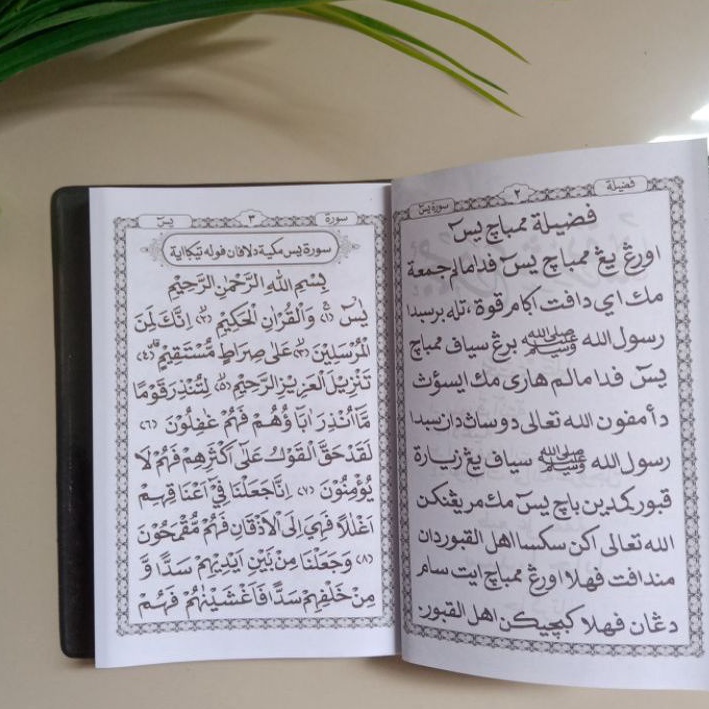 فضيلة
٢
سورة يس
فضيلة ممباچ يسٓ
اورڠ يڠ ممباچ يسٓ ڤدا مالم جمعة
مك اي داڤت اݢام قوة، تله برسبدا
رسول الله ﷺ برڠ سياڤ ممباچ
يسٓ ڤدا مالم هاري مك ايسوقث
دأمڤون الله تعالى دوساث دان سبدا
رسول الله ﷺ سياڤ يڠ زيارة
قبور كمدين باچ يسٓ مك مريڠنكن
الله تعالى اكن سكسا اهل القبور دان
منداڤت ڤهلا اورڠ ممباچ ايت سام
دڠان ڤهلا كبچيكن اهل القبور.
سورة
٣
يسٓ
سورة يس مكية دلاڤان ڤوله تيݢ اية
بِسْمِ اللهِ الرَّحْمٰنِ الرَّحِيْمِ
يٰسٓ ﴿١﴾ وَالْقُرْاٰنِ الْحَكِيْمِ ﴿٢﴾ اِنَّكَ لَمِنَ
الْمُرْسَلِيْنَ ﴿٣﴾ عَلٰى صِرَاطٍ مُّسْتَقِيْمٍ ﴿٤﴾
تَنْزِيْلَ الْعَزِيْزِ الرَّحِيْمِ ﴿٥﴾ لِتُنْذِرَ قَوْمًا
مَّآ اُنْذِرَ اٰبَاۤؤُهُمْ فَهُمْ غٰفِلُوْنَ ﴿٦﴾
لَقَدْ حَقَّ الْقَوْلُ عَلٰٓى اَكْثَرِهِمْ فَهُمْ لَا
يُؤْمِنُوْنَ ﴿٧﴾ اِنَّا جَعَلْنَا فِيْٓ اَعْنَاقِهِمْ
اَغْلٰلًا فَهِيَ اِلَى الْاَذْقَانِ فَهُمْ مُّقْمَحُوْنَ
﴿٨﴾ وَجَعَلْنَا مِنْۢ بَيْنِ اَيْدِيْهِمْ سَدًّا وَّ
مِنْ خَلْفِهِمْ سَدًّا فَاَغْشَيْنٰهُمْ فَهُمْ